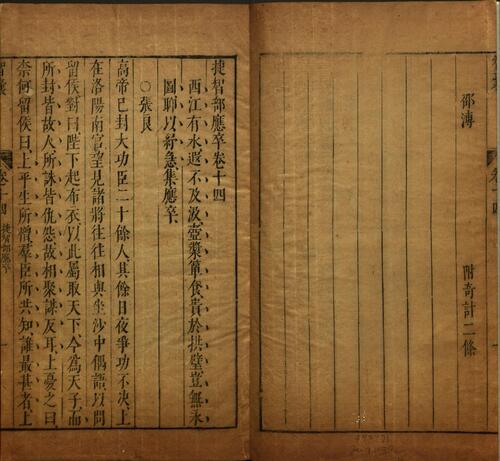 邵溥
附奇計二條
捷智部應卒卷十四
西江有水遐不及汲壺漿簞食貴於拱璧豈無永
圖聊以紓急集應卒
○張良
高帝已封大功臣二十餘人其餘日夜爭功不決上
在洛陽南宮望見諸將往往相與坐沙中偶語以問
留侯對曰陛下起布衣以此屬取天下今為天子而
所封皆故人所誅皆仇怨故相聚謀反耳上憂之曰
柰何留侯曰上平生所憎羣臣所共知誰最甚者上
智囊
卷十四
捷智部應卒
一